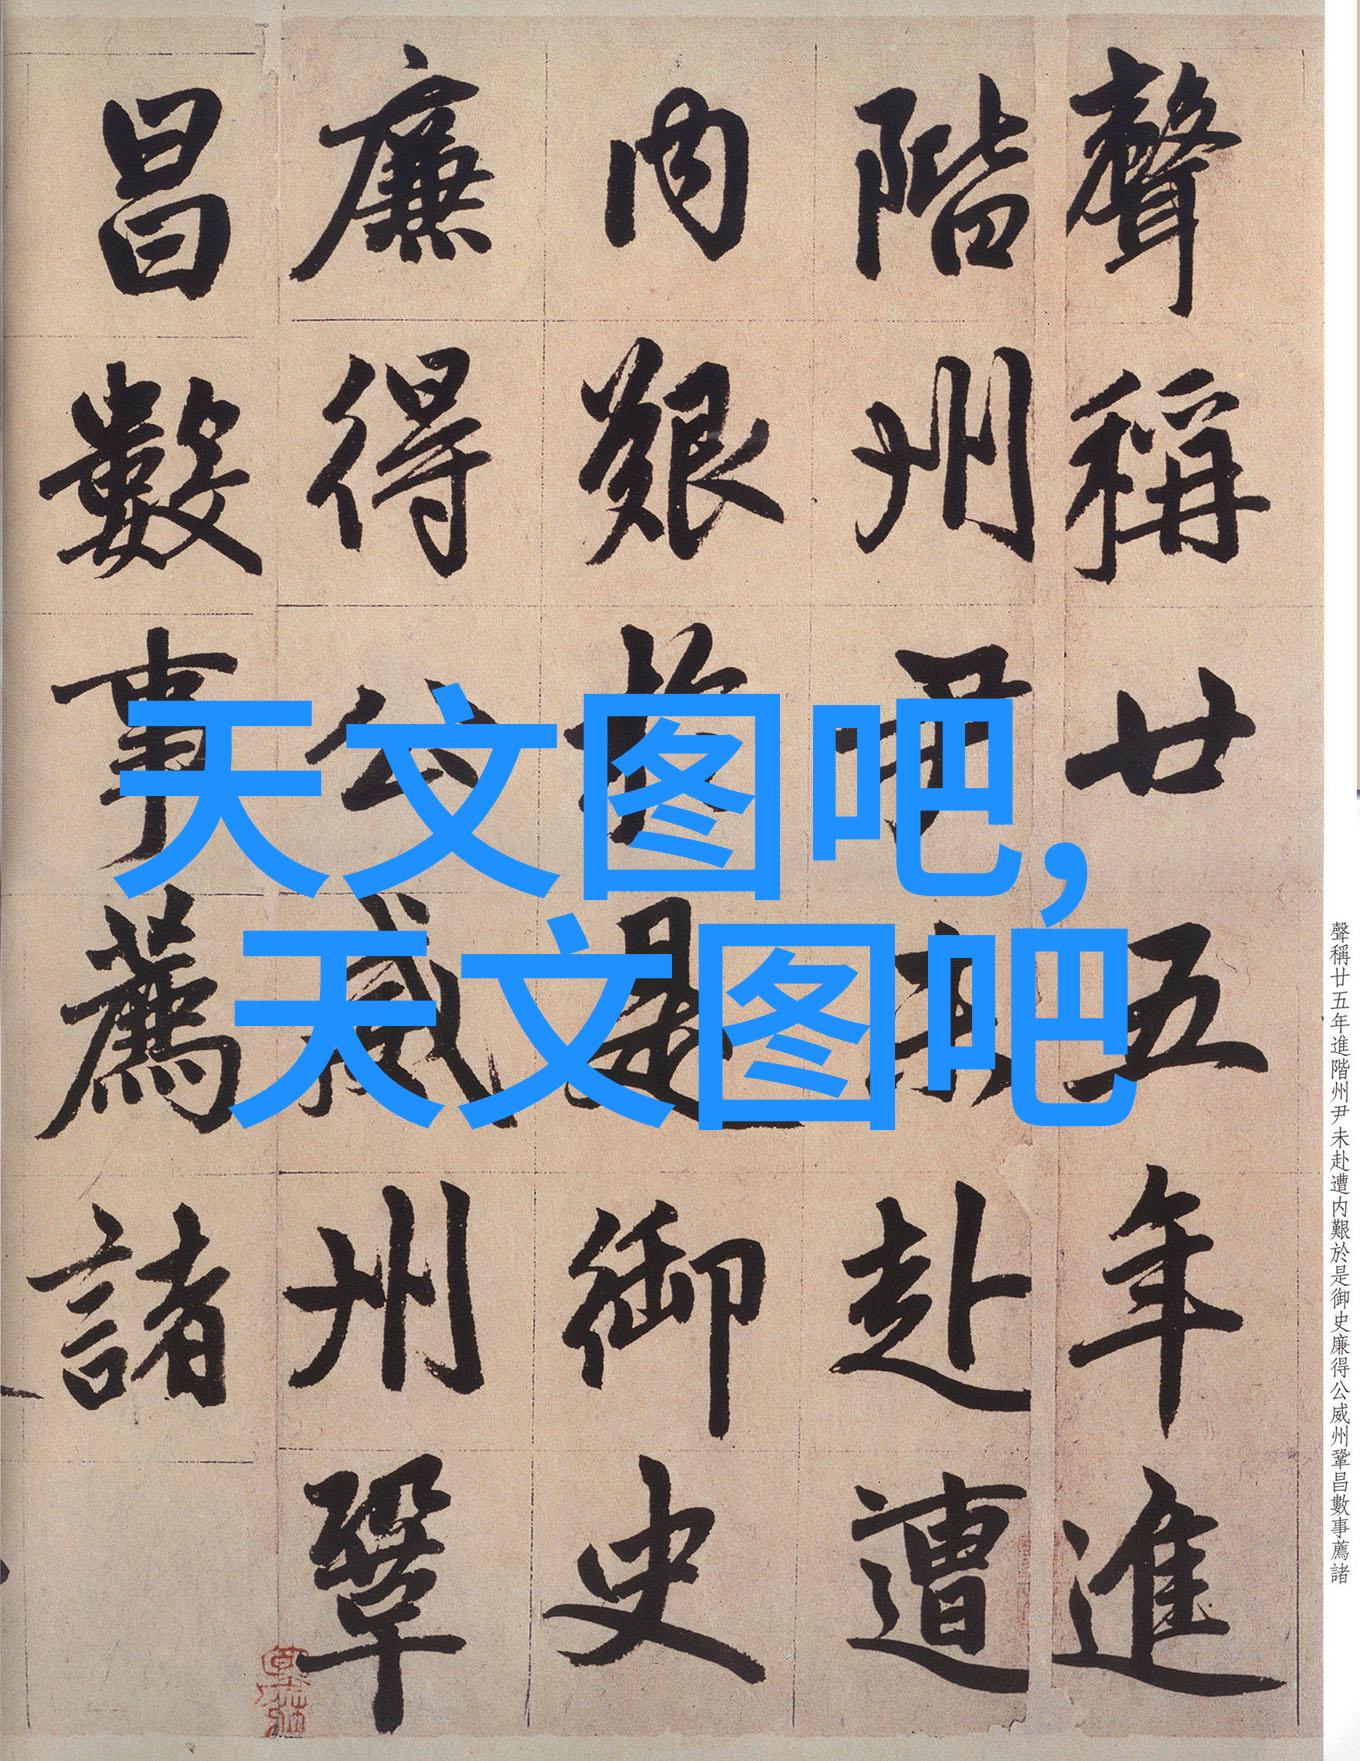 聲稱廿五年進
階州尹未赴遭
内艱於是御史
廉得公威州鞏
昌數事薦諸
天文图吧,
天文图吧
聲稱廿五年進階州尹未赴遭内艱於是御史廉得公威州鞏昌數事薦諸